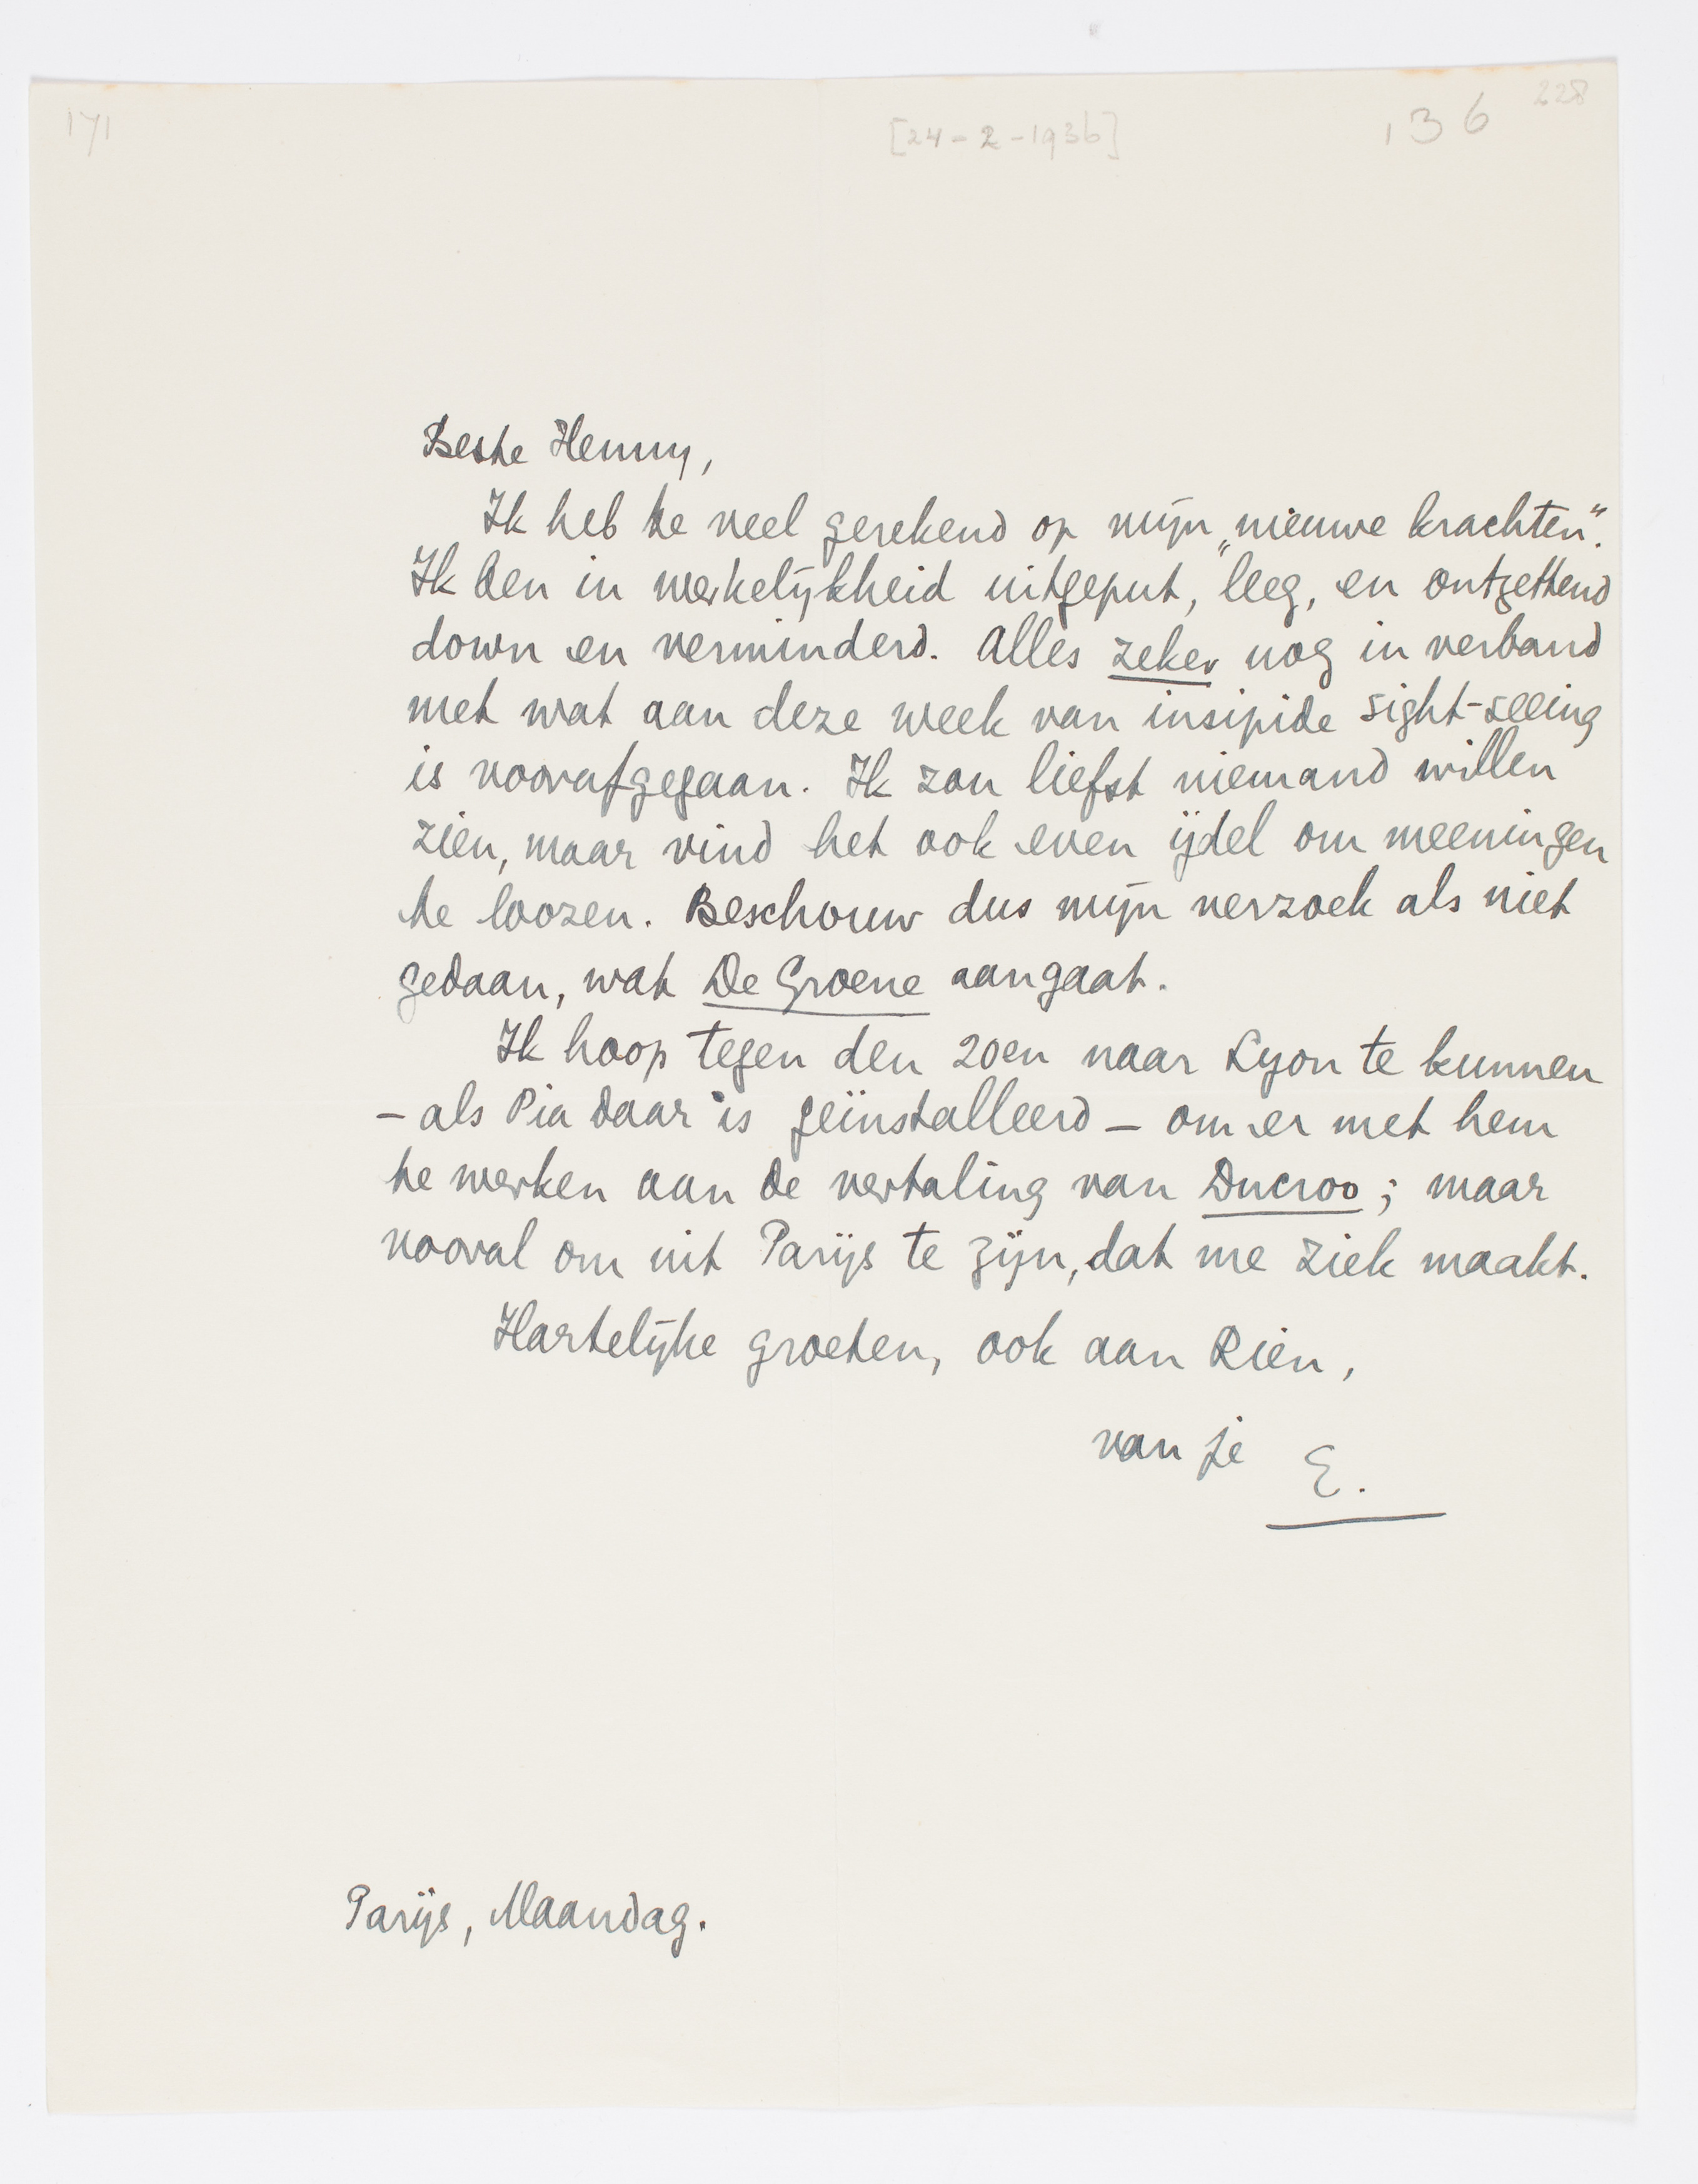 171
[24-2-1936]
136
228
Beste Henny,
Ik heb te veel gerekend op mijn „nieuwe krachten”.
Ik ben in werkelijkheid uitgeput, leeg, en ontzettend
down en verminderd. Alles zeker nog in verband
met wat aan deze week van insipide sight-seeing
is voorafgegaan. Ik zou liefst niemand willen
zien, maar vind het ook even ijdel om meeningen
te loozen. Beschouw dus mijn verzoek als niet
gedaan, wat De Groene aangaat.
Ik hoop tegen den 20en naar Lyon te kunnen
– als Pia daar is geïnstalleerd – om er met hem
te werken aan de vertaling van Ducroo; maar
vooral om uit Parijs te zijn, dat me ziek maakt.
Hartelijke groeten, ook aan Rien,
van je E.
Parijs, Maandag.